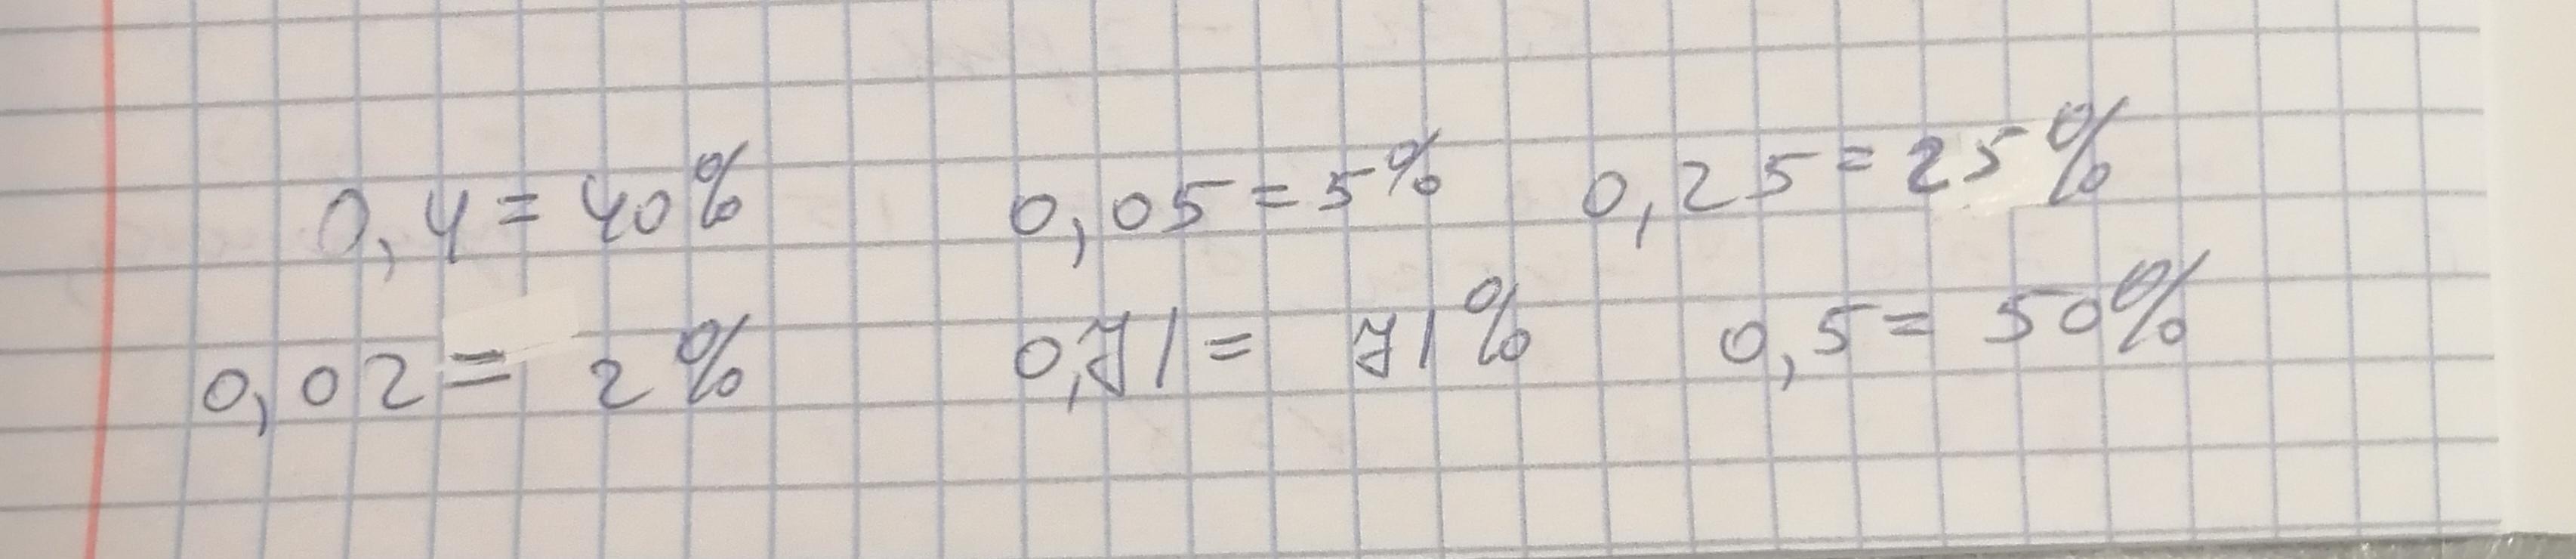 0,4 = 40% 0,05 = 5% 0,25 = 25%
0,02 = 2% 0,71 = 71% 0,5 = 50%